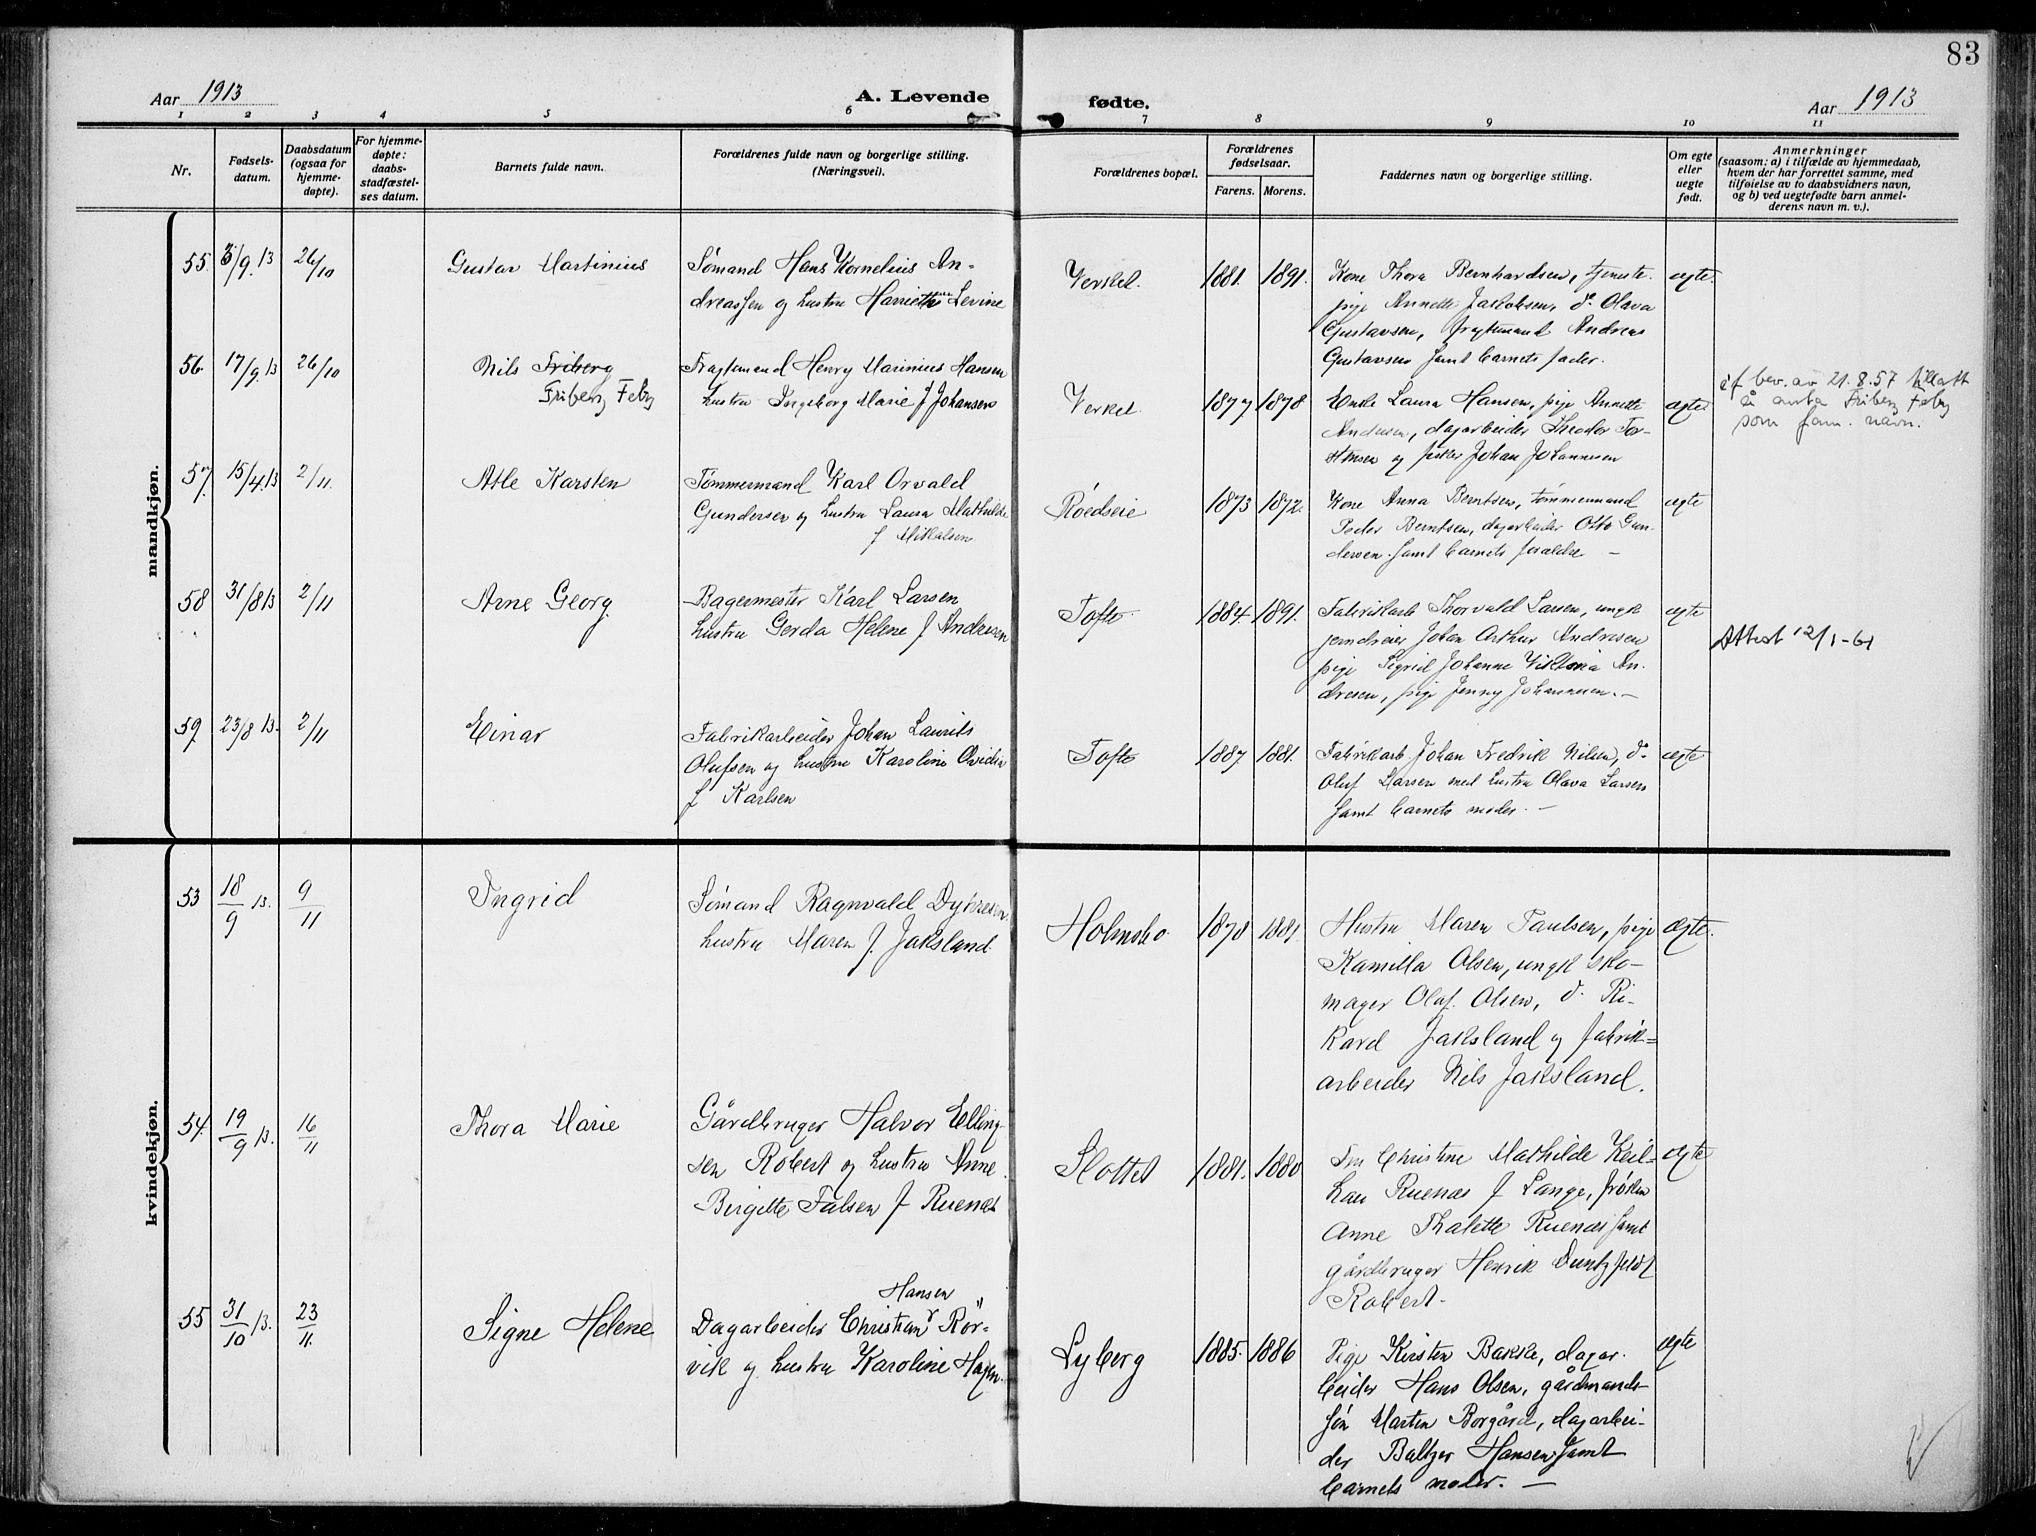 83
Aar 1913
A. Levende
fødte.
Aar 1913
1 2 3 4 5 6 7 8 9 10 11
Nr.
Fødsels-
datum.
Daabsdatum
(ogsaa for
hjemme-
døpte).
For hjemme-
døpte:
daabs-
stadfæstel-
ses datum.
Barnets fulde navn.
Forældrenes fulde navn og borgerlige stilling.
(Næringsveil).
Forældrenes bopæl.
Forældrenes
fødselsaar.
Farens. Morens.
Faddernes navn og borgerlige stilling.
Om egte
eller
uegte
født.
Anmerkninger
(saasom: a) i tilfælde av hjemmedaab,
hvem der har forrettet samme, med
tilføielse av to daabsvidners navn,
og b) ved uegtefødte barn anmel-
derens navn m. v.).
mandkjøn.
55. 3/9.13 26/10
Gustav Martinius
Sømand Hans Kornelius An-
dreassen og hustru Levine
Verket. 1881. 1891.
Kone Thora Bernhardsen, tjeneste-
pige Annette Jakobsen, do Olava
Gustavsen, fragtemand Andreas
Gustavsen samt barnets fader.
egte.
56. 17/9.13 26/10
Nils Friberg
Friberg Feby
Fragtemand Henry Marinius Hansen
hustru Ingeborg Marie f Johansen
Verket. 1877 1878
Enke Laura Hansen, pige Annette
Andresen, dagarbeider Theodor Tor-
og fisker Johan Johannesen
egte
if bev. av 21.8.57 tillatt
å anta Friberg Feby
som fam. navn.
57. 15/4.13 2/11.
Atle Karsten
Tømmermand Karl Orvald
Gundersen og hustru Laura Mathilde
f Mikalsen
Røedseie 1873 1872.
Kone Anna Berntsen, tømmermand
Peder Berntsen, dagarbeider Otto Gun-
dersen samt barnets forældre —
egte
58 31/8 13 2/11
Arne Georg
Bagermester Karl Larsen
hustru Gerda Helene f Andresen
Tofte. 1884. 1891.
Fabrikarb Thorvald Larsen, ungk
Johan Arthur Andresen
pige Sigrid Johanne Viktoria An-
dresen, pige Jenny Johannesen. —
egte
Attest 12/1-61
59. 23/8 13. 2/11
Einar
Fabrikarbeider Johan Laurits
Olufsen og hustru Karoline Ovidia
f Karlsen
Tofte 1887 1881.
Fabrikarb. Johan Fredrik Nilsen, do
Oluf Larsen med hustru Olava Larsen
samt barnets moder. —
egte
kvindekjøn.
53 18/9 13. 9/11
Ingrid
Sømand Ragnvald
hustru Maren f. Jaksland
Holmsbo 1878 1881.
Hustru Maren Paulsen, pige
Kamilla Olsen, ungk sko-
mager Oluf Olsen, do Ri-
kard Jaksland og fabrik-
arbeider Nils Jaksland.
egte.
54. 19/9 13. 16/11
Thora Marie
Gårdbruger Halvor Elling-
sen Robert og hustru Anne
Birgitte Falsen f Ruenæs
Slottet 1881. 1880
Fru Christine Mathilde Keil-
hau Ruenæs f Lange, frøken
Anne Thalette Ruenæs samt
gårdbruger Henrik Duntzfeldt
Robert.
egte
55 31/10 13. 23/11.
Signe Helene
Hansen
Dagarbeider Christian Rør-
vik og hustru Karoline Hagen.
Lyberg 1885. 1886
Pige Kirsten Bakke, dagar-
beider Hans Olsen, gårdmands-
søn Martin Borgård, dagarbei-
der Baltzer Hansen samt
barnets moder. —
egte